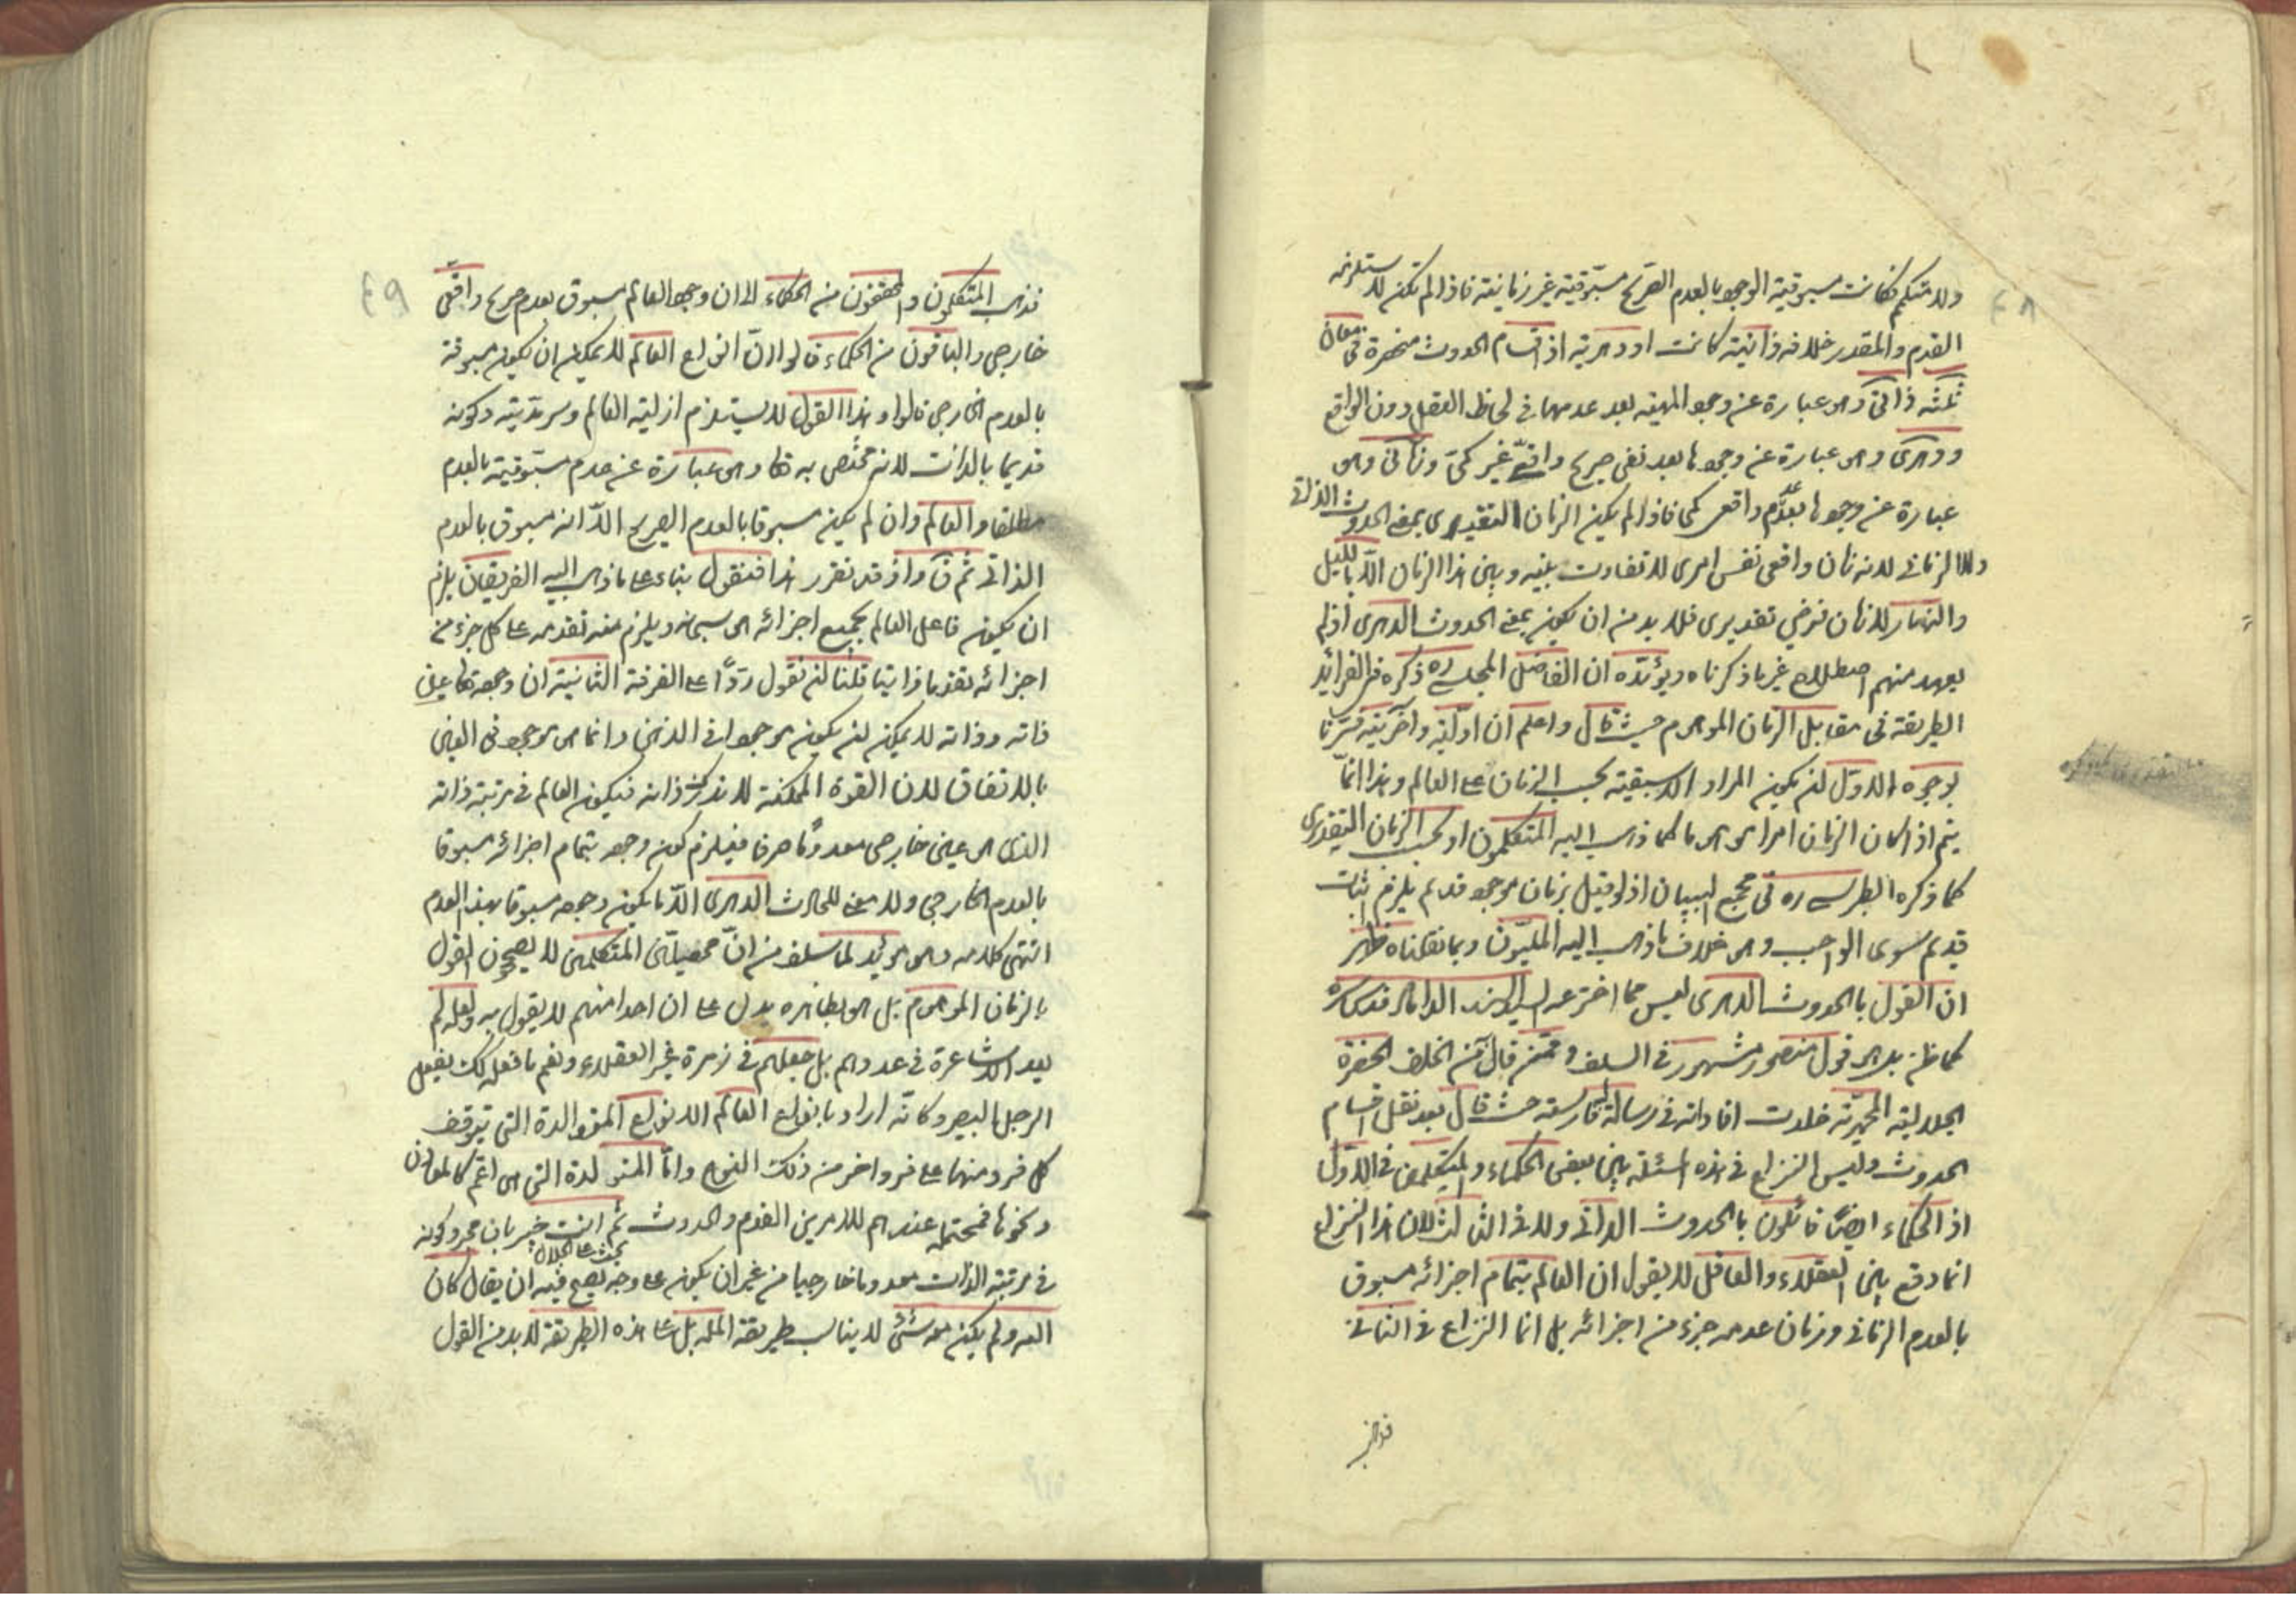 ولا متكم فكانت مسبوقية الوجود بالعدم الصريح مسبوقية غير زمانية فاذا لم تكن لاستلزامه
القدم والمقدر خلافه ذاتية كانت او دهرية اذ اقسام الحدوث منحصرة في معان
ثلثة ذاتي وهو عبارة عن وجود المهية بعد عدمها في لحاظ العقل دون الواقع
ودهري وهو عبارة عن وجودها بعد نفي صريح واقعي غير كمي وزماني وهو
عبارة عن وجودها بعد عدم واقعي كمي فاذا لم يكن الزمان التقديري بمعنى الحدوث الذاتي
ولا الزماني لانه زمان واقعي نفس امري لا تفاوت بينه وبين هذا الزمان الا بالليل
والنهار لا زمان فرضي تقديري فلا بد من ان يكون بمعنى الحدوث الدهري اذ لم
يعهد منهم اصطلاح غير ما ذكرناه ويؤيده ان الفاضل المجلسي ره ذكره في الفرائد
الطريقة في مقابل الزمان الموهوم حيث قال واعلم ان اوليته واخريته فسرنا
بوجوه الاول ان يكون المراد الاسبقية بحسب الزمان على العالم وهذا انما
يتم اذا كان الزمان امرا موهوما كما ذهب اليه المتكلمون او بحسب الزمان التقديري
كما ذكره الطبرسي ره في مجمع البيان اذ لو قيل بزمان موجود قديم يلزم اثبات
قديم سوى الواجب وهو خلاف ما ذهب اليه المليون وبما نقلناه ظهر
ان القول بالحدوث الدهري ليس مما اخترعه السيد السند الداماد قدس سره
كما ظن بل هو قول منصور مشهور في السلف وممن قال من الخلف الحضرة
الجلالية المحمدية خلدت افاداته في رسالة فارسية حيث قال بعد نقل اقسام
الحدوث وليس النزاع في هذه المسئلة بين بعض الحكماء والمتكلمين في الاول
اذ الحكماء ايضا قائلون بالحدوث الذاتي ولا في الثالث لان هذا النزاع
انما وقع بين العقلاء والعاقل لا يقول ان العالم بتمام اجزائه مسبوق
بالعدم الزماني وزمان عدمه جزء من اجزائه بل انما النزاع في الثاني
فذهب
٤٩
فذهب المتكلمون والمحققون من الحكماء الى ان وجود العالم مسبوق بعدم صريح واقعي
خارجي والباقون من الحكماء قالوا ان انواع العالم لا يمكن ان يكون مسبوقة
بالعدم الخارجي قالوا وهذا القول لا يستلزم ازلية العالم وسرمديته وكونه
قديما بالذات لانه مختص به تعالى وهو عبارة عن عدم مسبوقيته بالعدم
مطلقا والعالم وان لم يكن مسبوقا بالعدم الصريح الا انه مسبوق بالعدم
الذاتي ثم قال واذ قد تقرر هذا فنقول بناء على ما ذهب اليه الفريقان يلزم
ان يكون فاعل العالم بجميع اجزائه هو سبحانه ويلزم منه تقدمه على كل جزء من
اجزائه تقدما ذاتيا قلنا ان نقول ردا على الفرقة الثانية ان وجوده تعالى عين
ذاته وذاته لا يمكن ان يكون موجودا في الذهن وانما هو موجود في العين
بالاتفاق لان القوة الممكنة لا تدرك ذاته فيكون العالم في مرتبة ذاته
الذي هو عين خارجي معدوما صرفا فيلزم كون وجوده بتمام اجزائه مسبوقا
بالعدم الخارجي ولا معنى للحادث الدهري الا ما يكون وجوده مسبوقا بهذا العدم
انتهى كلامه وهو مؤيد لما سلف من ان محصلي المتكلمين لا يصححون القول
بالزمان الموهوم بل هو بظاهره يدل على ان احدا منهم لا يقول به ولعله لم
يعد الاشاعرة في عددهم بل جعلهم في زمرة غير العقلاء ونعم ما فعله كك يفعل
الرجل البصير وكانه اراد بانواع العالم الانواع المتوالدة التي يتوقف
كل فرد منها على فرد اخر من ذلك النوع واما المتولدة التي هي اعم كالمعادن
ونحوها فمحتملة عندهم للامرين القدم والحدوث ثم انت خبير بان مجرد كونه
في مرتبة الذات معدوما خارجيا من غير ان يكون على وجه يصح فيه ان يقال كان
بحث على الجلال
الله ولم يكن معه شئ لا يناسب طريقة المله بل على هذه الطريقة لا بد من القول